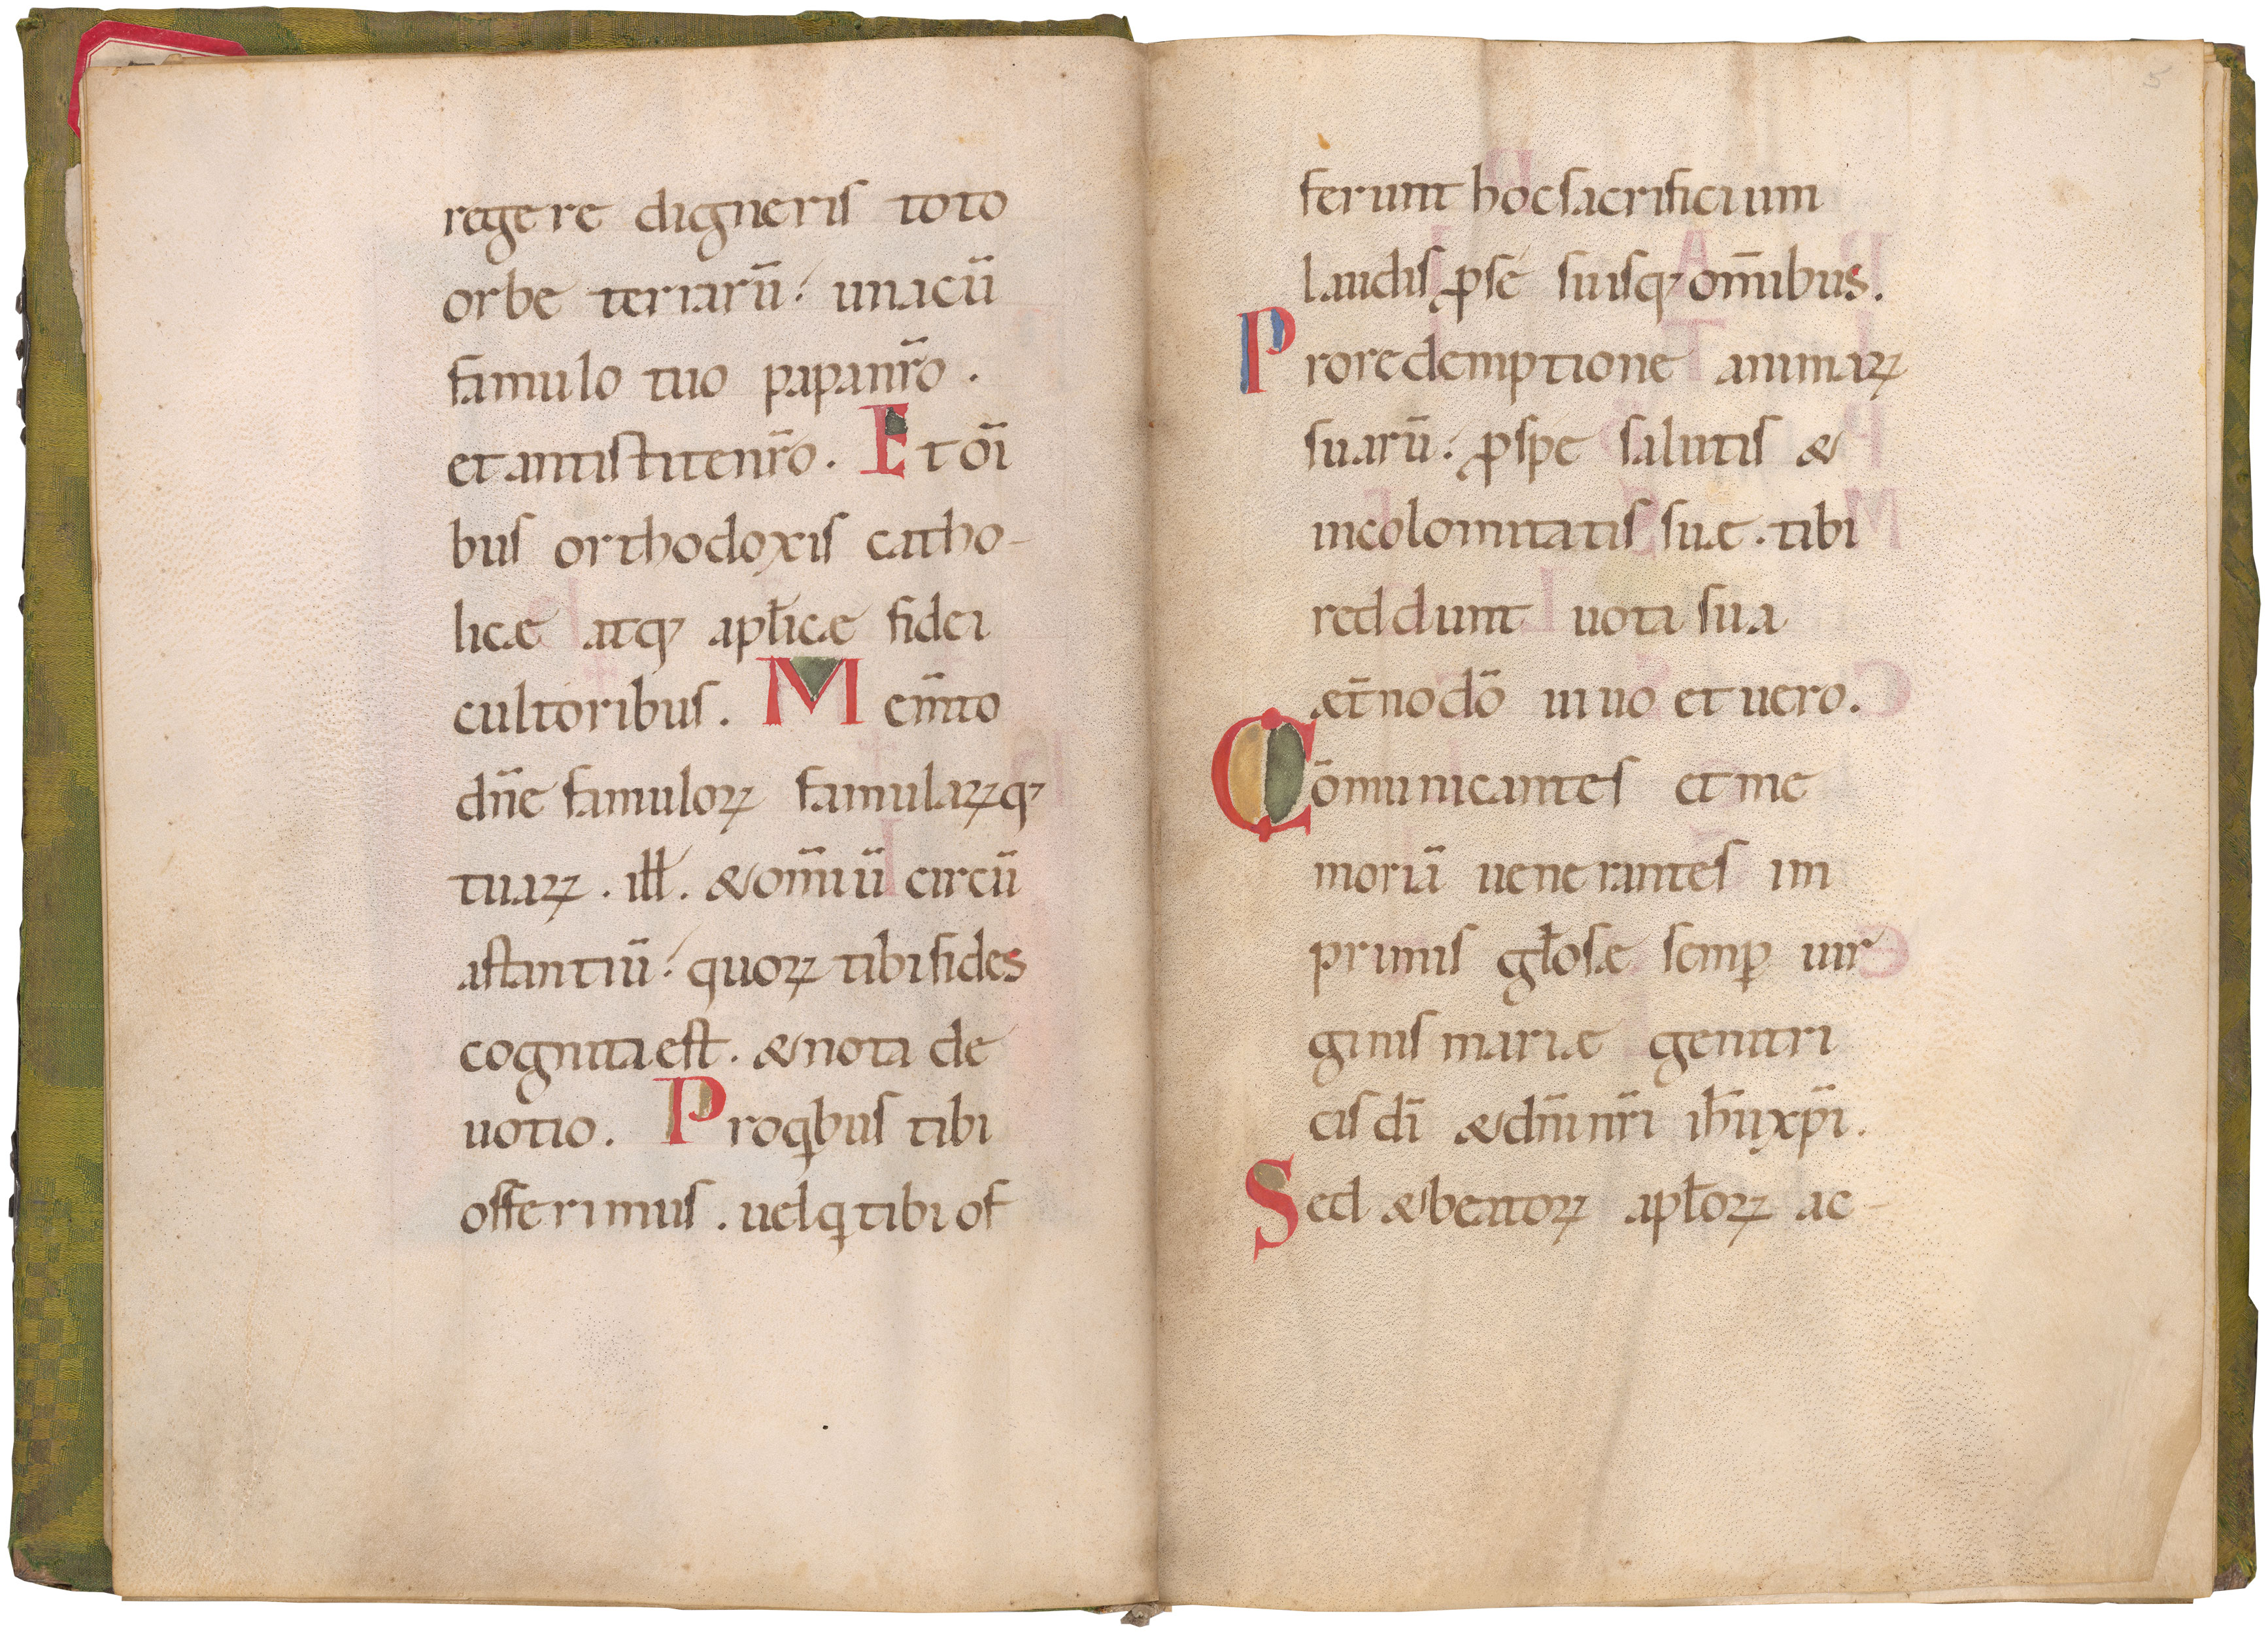 regere digneris toto
orbe terrarū: unacū
famulo tuo papanr̄o.
et antistitenr̄o. Et om̄i
bus orthodoxis catho-
licæ atq; apl̄icæ fidei
cultoribus. Mem̄to
dn̄e famuloꝝ famulaꝝq;
tuaꝝ. ill̄. & om̄iū circū
astantiū: quoꝝ tibi fides
cognita est. & nota de
uotio. Proqꝫbus tibi
offerimus. uelq̄ tibi of
5
ferunt hoc sacrificium
laudis ꝓ se suisq; om̄ibus.
Pro redemptione animaꝝ
suarū: ꝓ spe salutis &
incolomitatis suæ. tibi
reddunt uota sua
æt̄no dō uiuo et uero.
Cōmunicantes et me
moriā uenerantes im
primis gl̄osæ semꝑ uir
ginis mariæ genitri
cis dī & dn̄i nr̄i ih̄u xp̄i.
Sed & beatoꝝ apl̄oꝝ ac-